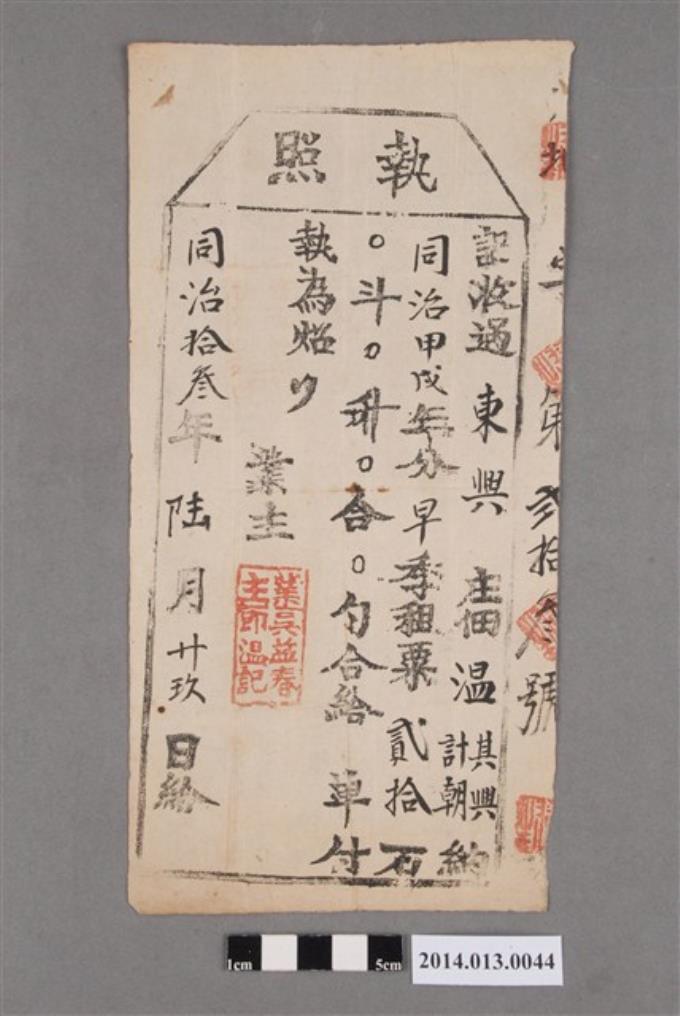 執照
第貳拾叁號
記收過東興庄佃温其興計朝納
同治甲戌年分早季租粟貳拾石
○斗○升○合○勺合給單付
執為炤
業主
業吳益春
主節温記
同治拾叁年陸月廿玖日給
1cm 5cm
2014.013.0044